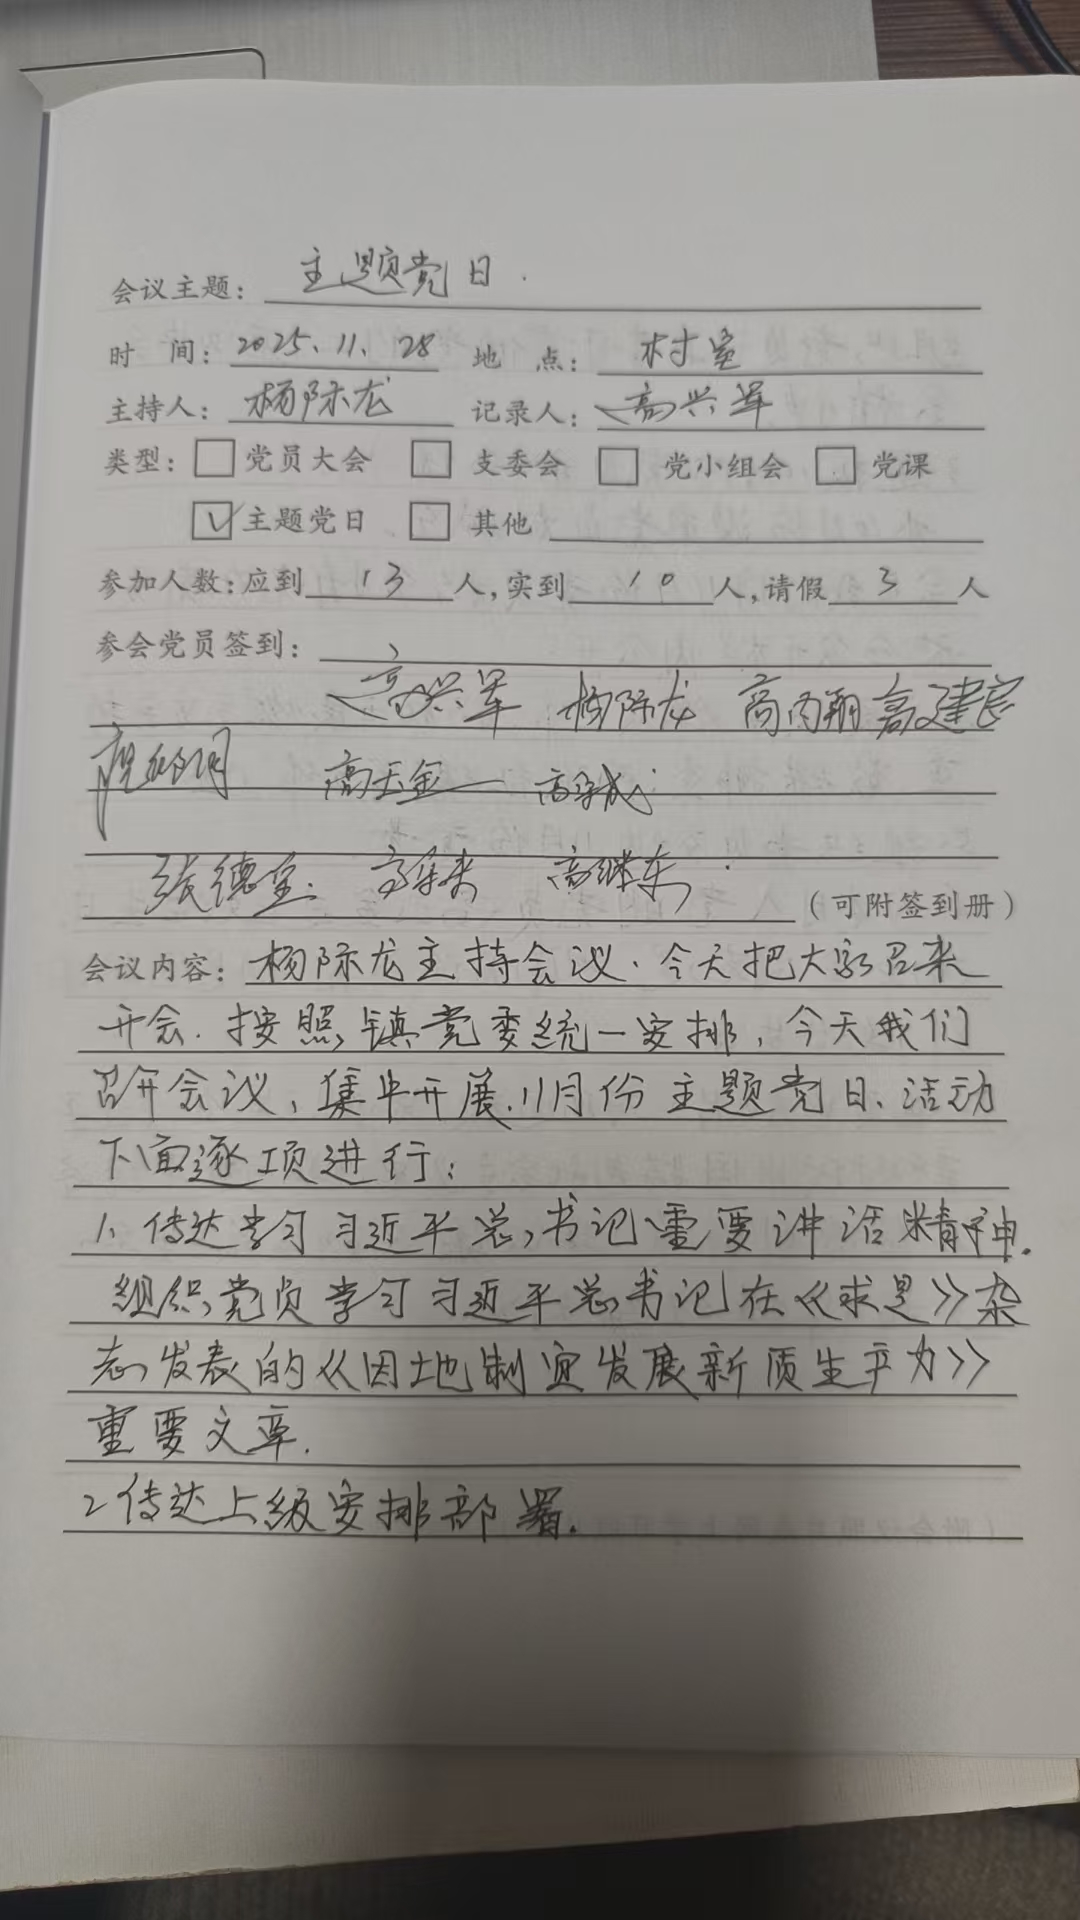 会议主题: 主题党日.
时 间: 2025、11、28 地 点: 村室
主持人: 杨际龙 记录人: 高兴军
类型: 党员大会 支委会 党小组会 党课
√ 主题党日 其他
参加人数: 应到 13 人, 实到 10 人, 请假 3 人
参会党员签到:
高兴军 杨际龙 高丙翔 高建良
高玉金
张德宝 高继东
(可附签到册)
会议内容: 杨际龙主持会议. 今天把大家召来
开会. 按照镇党委统一安排, 今天我们
召开会议, 集中开展11月份主题党日、活动
下面逐项进行:
1、传达学习习近平总书记重要讲话精神.
组织党员学习习近平总书记在《求是》杂
志发表的《因地制宜发展新质生产力》
重要文章.
2 传达上级安排部署.